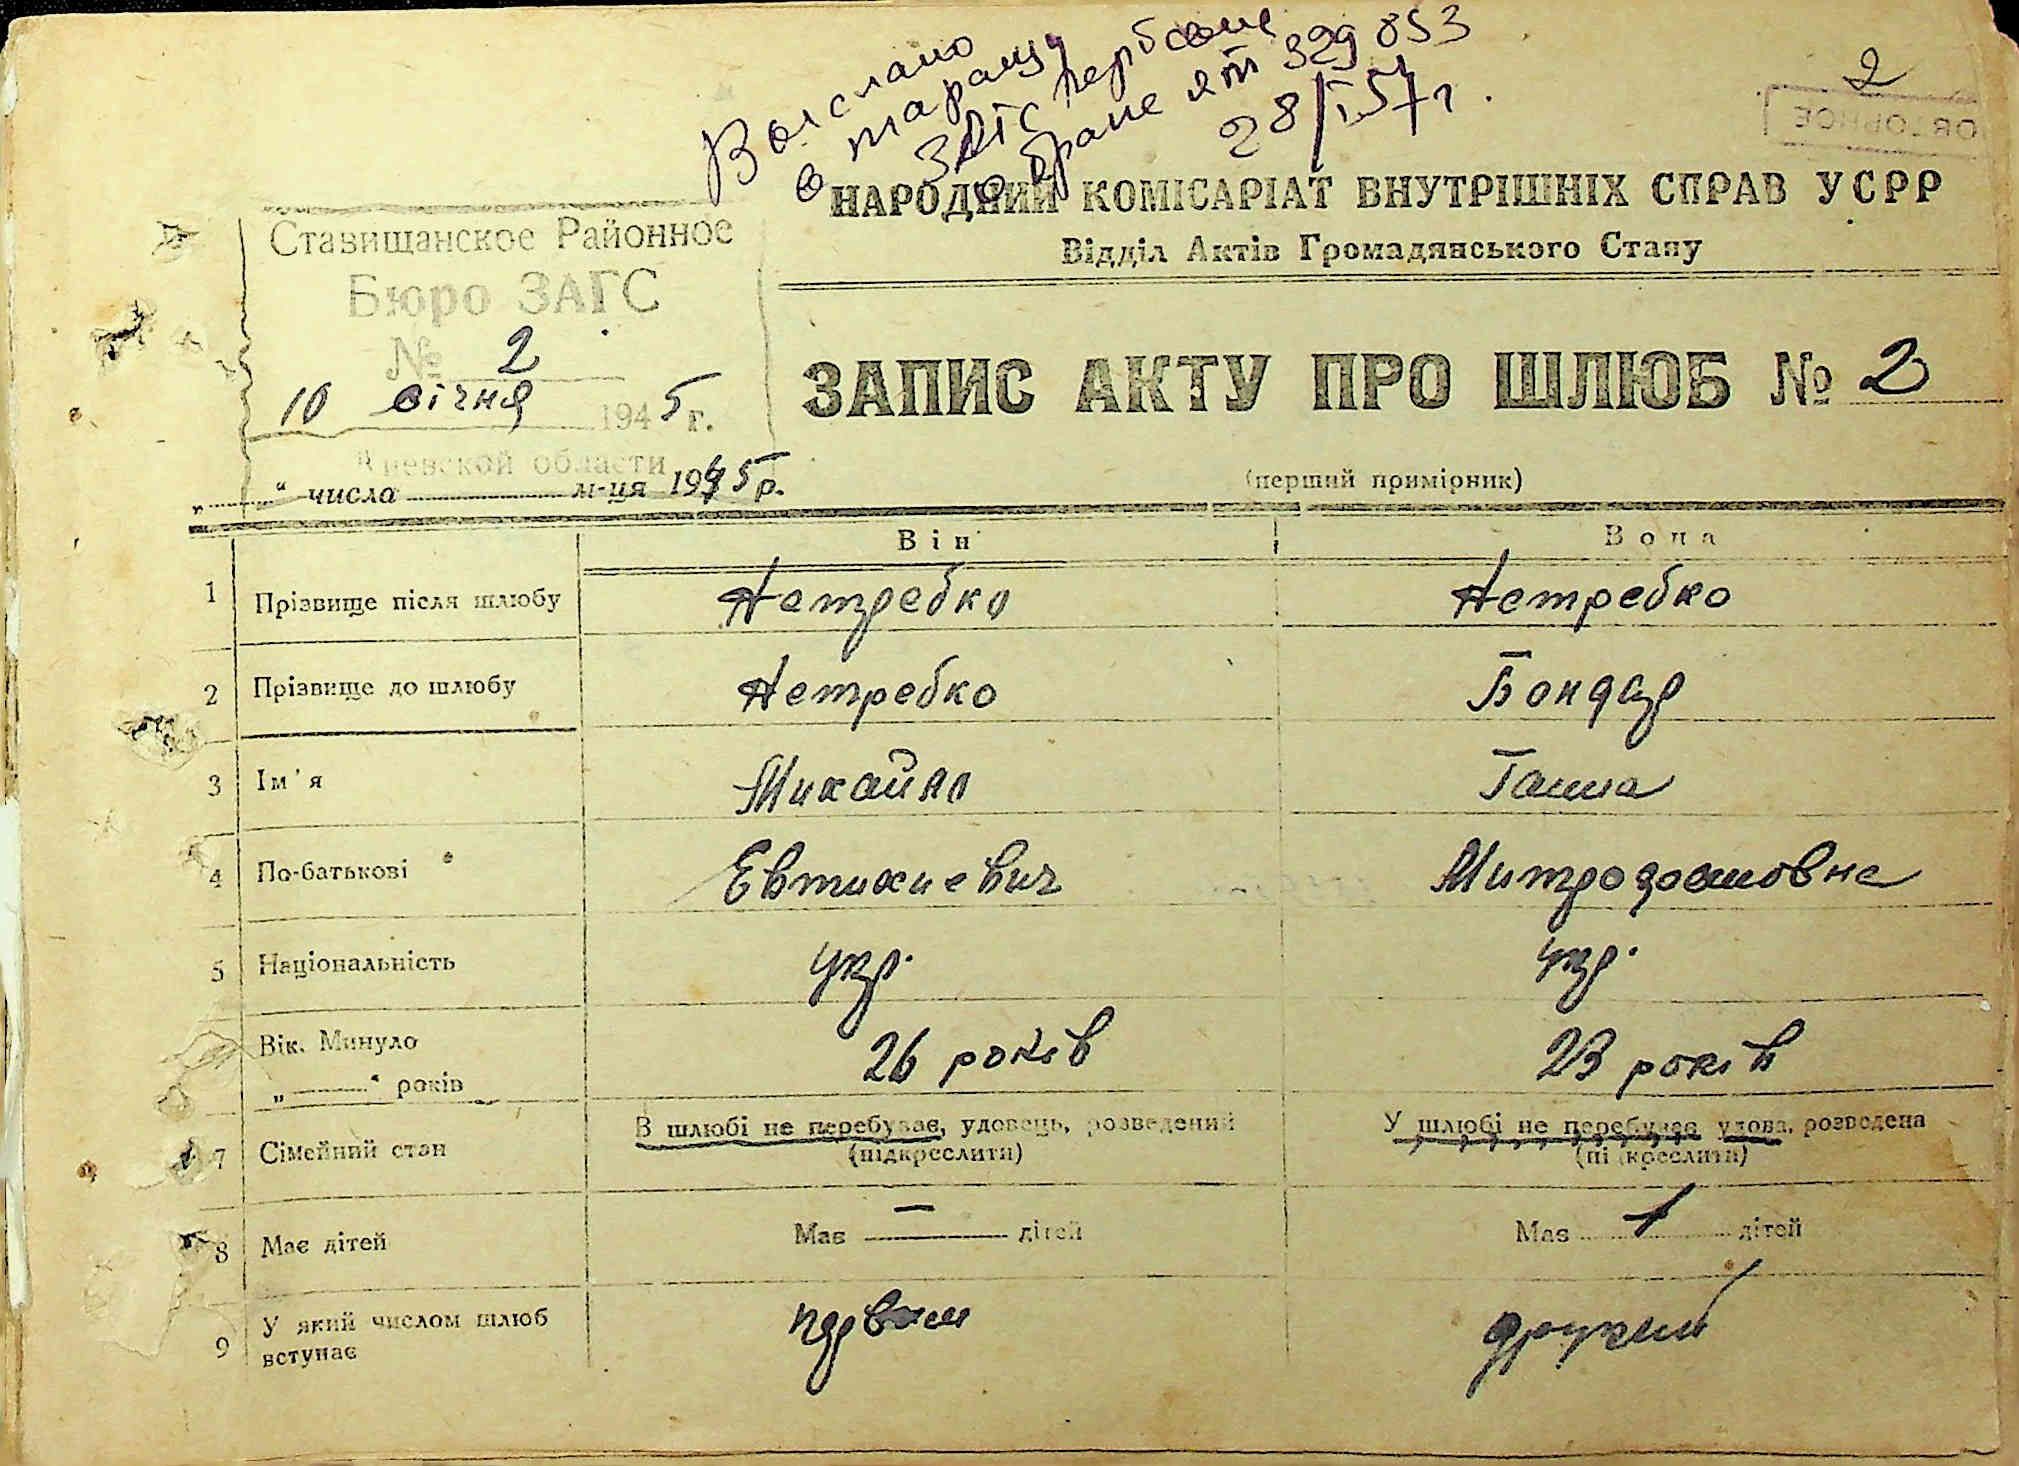 Выслано
в
ЗАГС повторне
о браке ЯТ 329853
28/I.57 г.
2
ПОВТОРНОЕ
НАРОДНИЙ КОМІСАРІАТ ВНУТРІШНІХ СПРАВ УСРР
Відділ Актів Громадянського Стану
Ставищанское Районное
Бюро ЗАГС
№ 2
10 січня 1945 г.
Киевской области
„ “ числа м-ця 1945 р.
ЗАПИС АКТУ ПРО ШЛЮБ № 2
(перший примірник)
Він Вона
1 Прізвище після шлюбу Нетребко Нетребко
2 Прізвище до шлюбу Нетребко Бондар
3 Ім'я Михайло Ганна
4 По-батькові Евтихиевич Митрофановна
5 Національність укр. укр.
Вік. Минуло 26 років 23 років
„ “ років
7 Сімейний стан В шлюбі не перебуває, удовець, розведений У шлюбі не перебуває удова, розведена
(підкреслити) (підкреслити)
8 Має дітей Має — дітей Має 1 дітей
9 У який числом шлюб первим другий
вступає